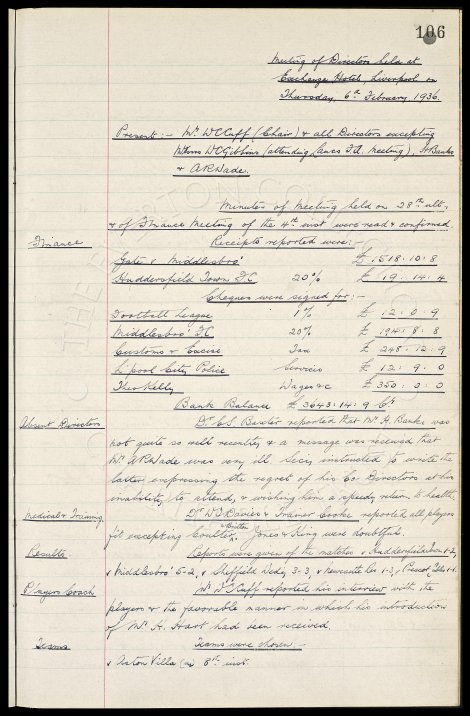 106
Meeting of Directors held at
Exchange Hotel, Liverpool on
Thursday, 6th February 1936.
Present:- Mr WC Cuff (Chair) & all Directors excepting
Messrs WC Gibbins (attending Lancs F.A. Meeting), H Banks
& AR Wade.
Minutes of Meeting held on 28th ult.
& of Finance Meeting of the 4th inst were read & confirmed.
Finance Receipts reported were:-
Gate v Middlesbro' £1518:10:8
Huddersfield Town FC 20% £19:14:4
Cheques were signed for:-
Football League 1% £12:0:9
Middlesbro' FC 20% £194:8:8
Customs & Excise Tax £248:12:9
L'pool City Police Services £12:9:0
Theo Kelly Wages &c £350:0:0
Bank Balance £3643:14:9 Cr
Absent Directors Dr CS Baxter reported that Mr H. Banks was
not quite so well recently & a message was received that
Mr AR Wade was very ill. Secy instructed to write the
latter expressing the regret of his Co-Directors at his
inability to attend, & wishing him a speedy return to health.
Medical & Training Dr Davies & Trainer Cooke reported all players
fit excepting Coulter, Britton, Jones & King were doubtful.
Results. Reports were given of the matches v Huddersfield Town 1-2,
v Middlesbro' 5-2, v Sheffield Wedy 3-3, v Newcastle Res 1-3, Prescot Cables 1-1.
Players Coach Mr Cuff reported his interview with the
players & the favorable manner in which his introduction
of Mr H. Hart had been received.
Teams Teams were chosen:-
v Aston Villa (a) 8th inst.